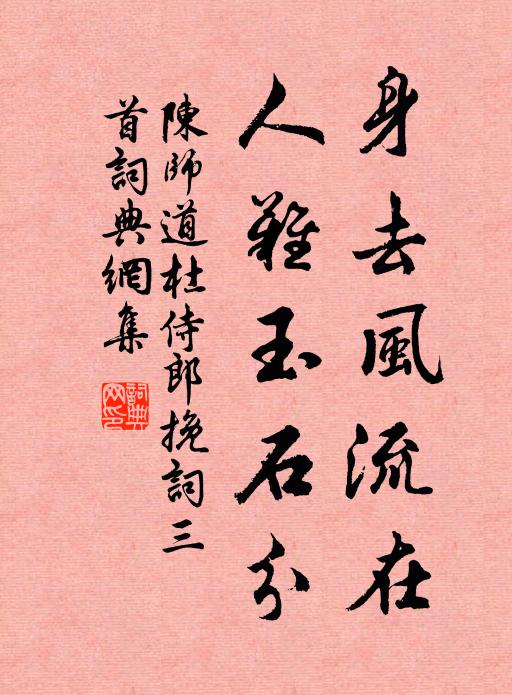 身去風流在
人難玉石分
陳師道杜侍郎挽詞三
首詞典網集
詞典
網印